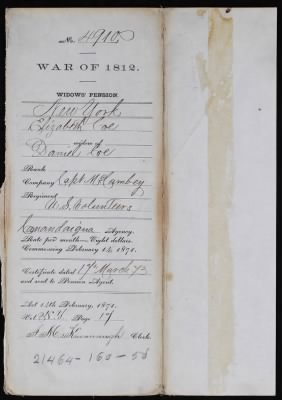 No. 4910
WAR OF 1812.
WIDOWS' PENSION.
New York
Elizabeth Coe
widow of
Daniel Coe
Rank
Company Capt
Regiment
U.S. Volunteers
Canandaigua Agency.
Rate per month, Eight dollars.
Commencing February 14, 1871.
Certificate dated 17th March 73.
and sent to Pension Agent.
Act 14th February, 1871.
Page 17
Clerk.